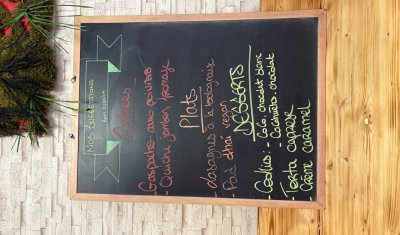 Nos suggestions
Bon appétit
Entrées
- Gaspacho aux poivrons
- Quiche jambon fromage
Plats
- Lasagnes à la bolognaise
- Pad thaï vegan
DESSERTS
- Cookies: - Coco, chocolat blanc
- Cacahuète, chocolat
- Tarta
- Crème caramel